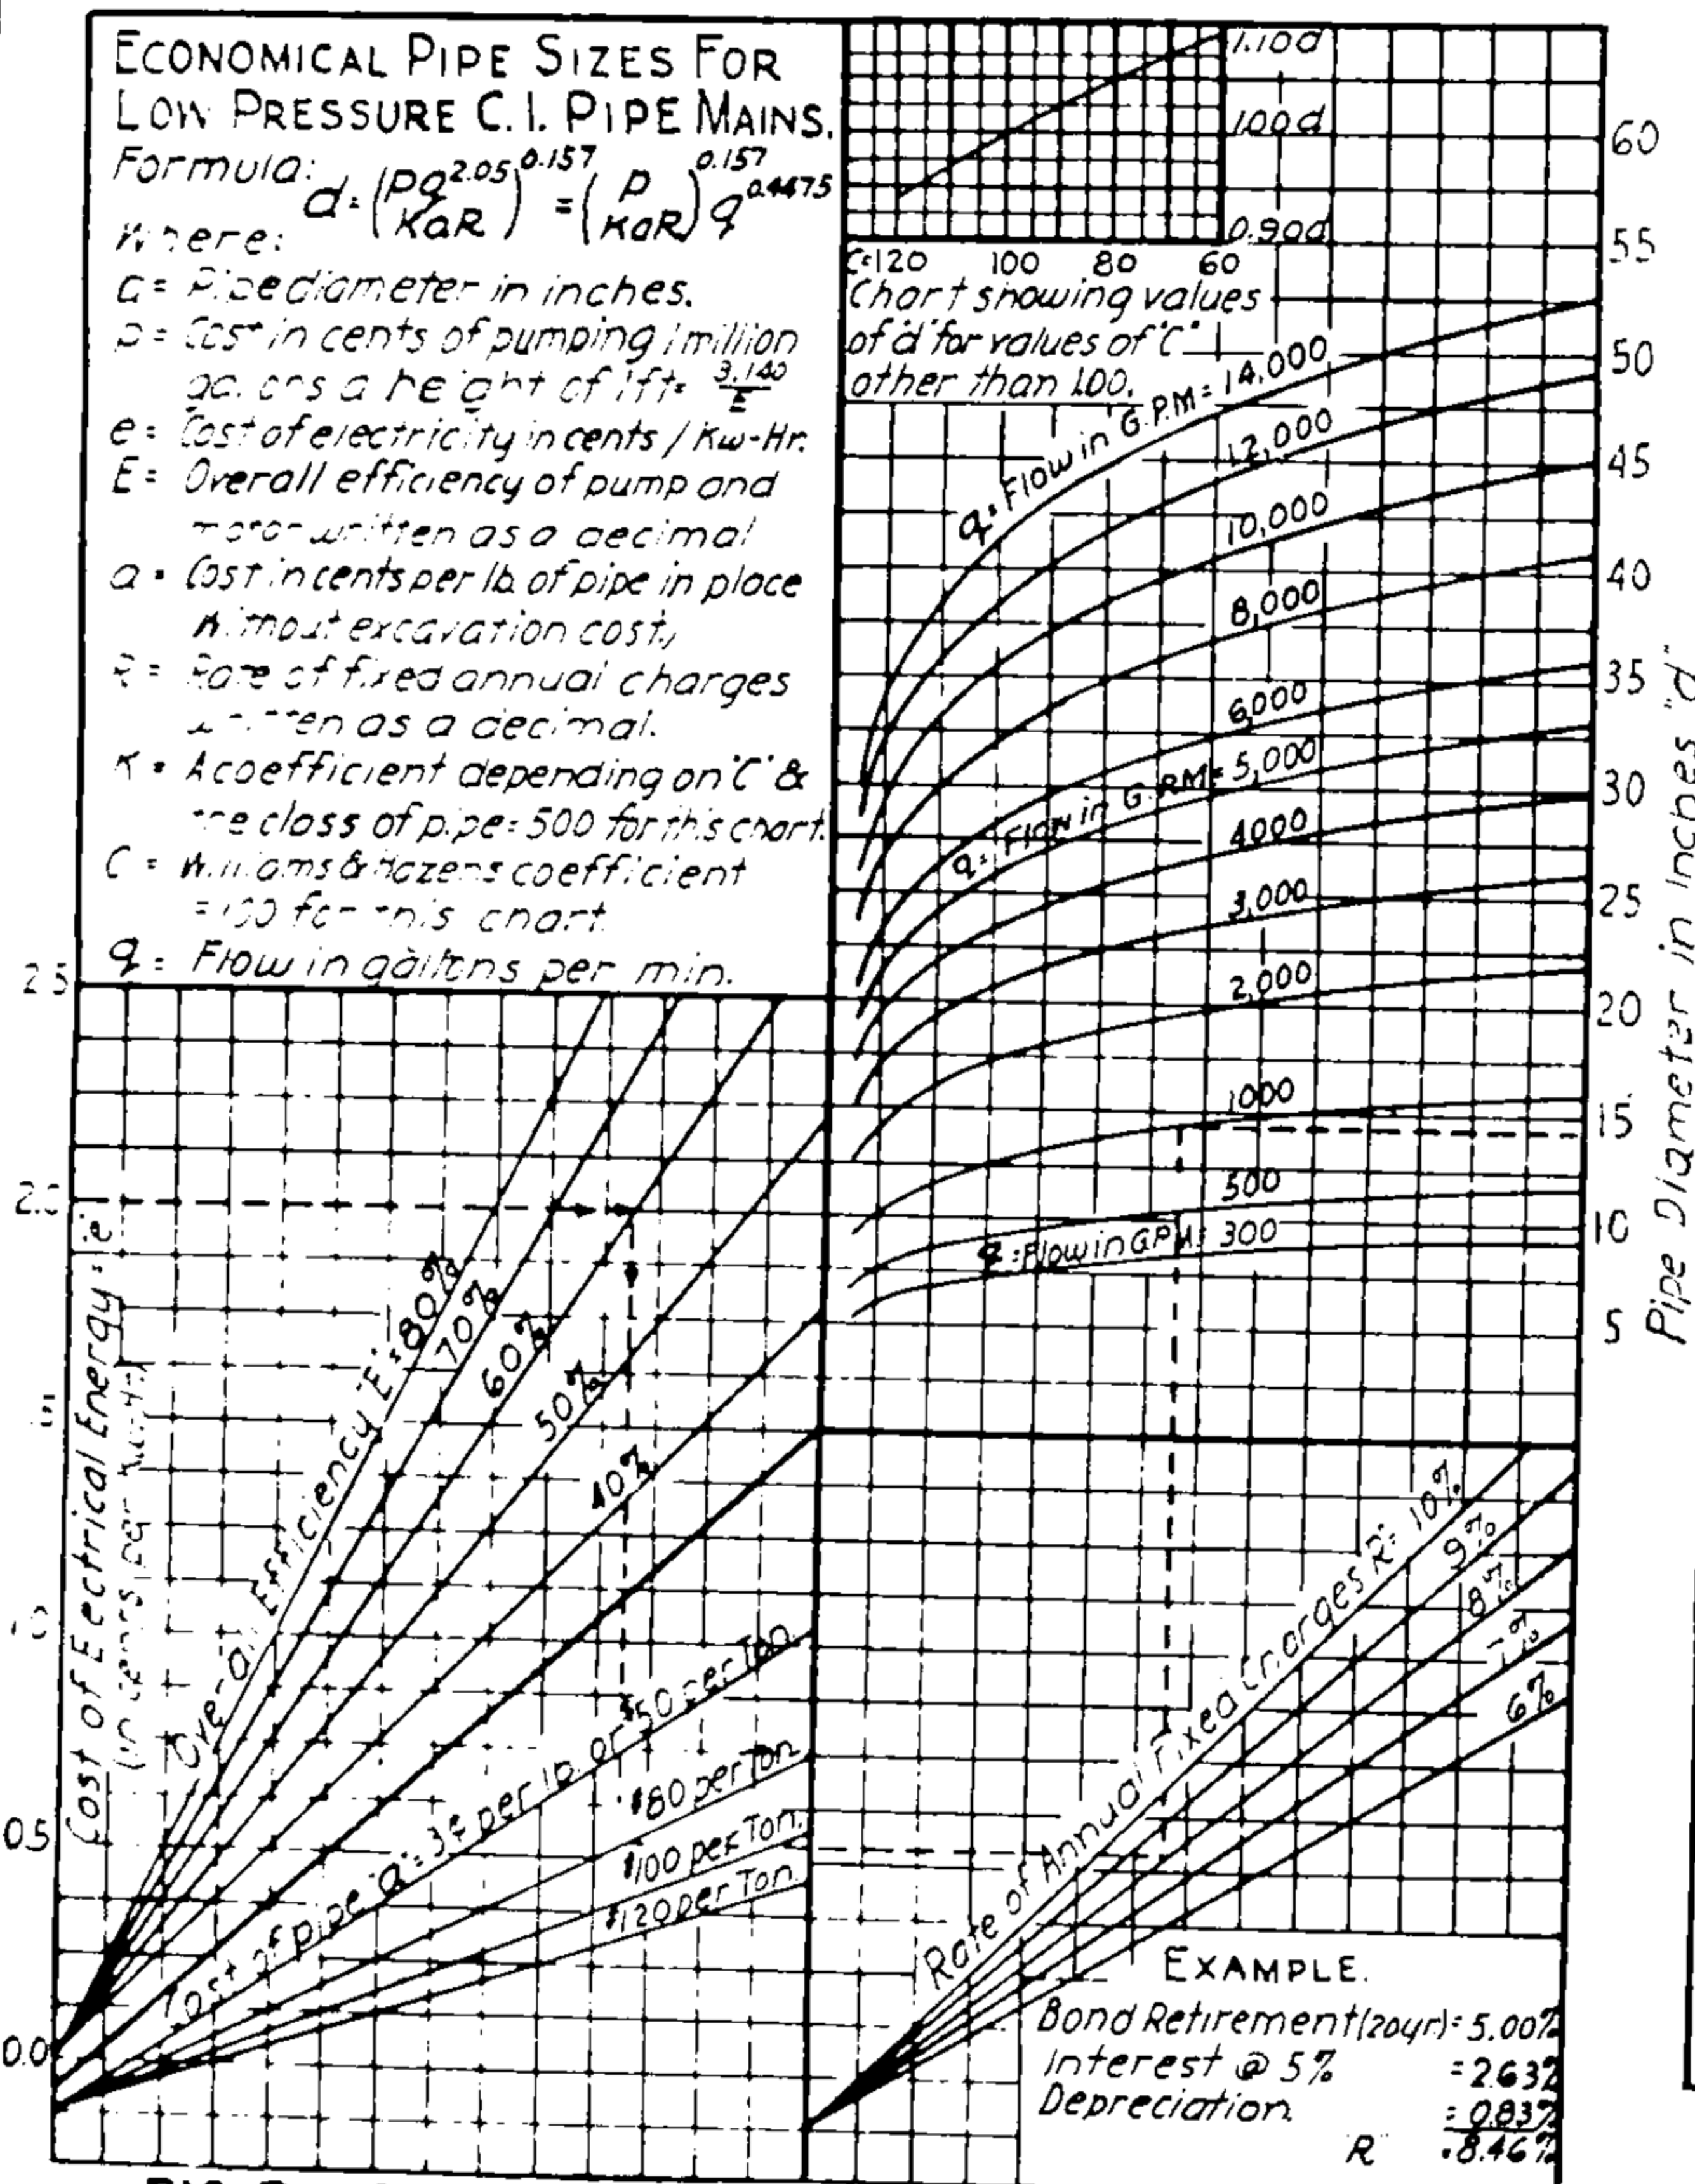 ECONOMICAL PIPE SIZES FOR
LOW PRESSURE C. I. PIPE MAINS.
Formula:
d = (pq^2.05 / KaR)^0.157 = (p / KaR)^0.157 q^0.4475
Where:
d = Pipe diameter in inches.
p = Cost in cents of pumping 1 million
gallons a height of 1ft = 3.140 / E
e = Cost of electricity in cents / Kw-Hr.
E = Overall efficiency of pump and
motor written as a decimal
a = Cost in cents per lb. of pipe in place
without excavation cost,
R = Rate of fixed annual charges
written as a decimal.
K = A coefficient depending on "C" &
the class of pipe = 500 for this chart.
C = Williams & Hazens coefficient
= 100 for this chart.
q = Flow in gallons per min.
1.10d
1.00d
0.90d
C=120 100 80 60
Chart showing values
of "d" for values of "C"
other than 100.
60
55
50
45
40
35
30
25
20
15
10
5
Pipe Diameter in Inches "d"
q = Flow in G.P.M = 14,000
12,000
10,000
8,000
6,000
q = Flow in G.P.M = 5,000
4000
3,000
2,000
1000
500
q = Flow in G.P.M = 300
2.5
2.0
1.0
0.5
0.0
Cost of Electrical Energy = "e"
(in cents per Kw-Hr)
Overall Efficiency "E" = 80%
70%
60%
50%
40%
Cost of pipe "a" = 3¢ per lb. or $50 per Ton
$80 per Ton
$100 per Ton.
$120 per Ton.
Rate of Annual Fixed Charges R = 10%
9%
8%
7%
6%
EXAMPLE.
Bond Retirement (20yr) = 5.00%
Interest @ 5% = 2.63%
Depreciation = 0.83%
R = 8.46%